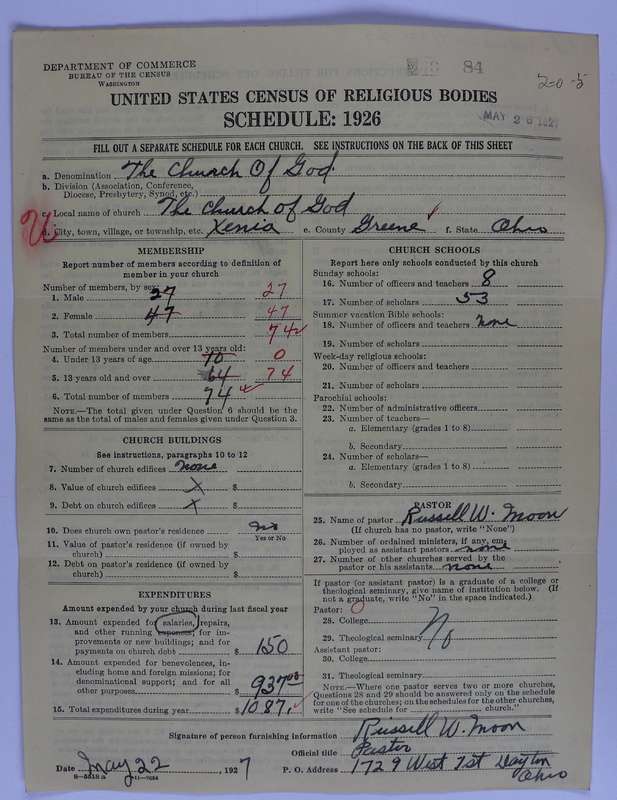 DEPARTMENT OF COMMERCE
BUREAU OF THE CENSUS
WASHINGTON
84
20-5
UNITED STATES CENSUS OF RELIGIOUS BODIES
SCHEDULE: 1926
MAY 26 1927
FILL OUT A SEPARATE SCHEDULE FOR EACH CHURCH. SEE INSTRUCTIONS ON THE BACK OF THIS SHEET
a. Denomination The Church Of God
b. Division (Association, Conference,
Diocese, Presbytery, Synod, etc.)
c. Local name of church The Church of God
d. City, town, village, or township, etc. Xenia e. County Greene f. State Ohio
MEMBERSHIP
Report number of members according to definition of
member in your church
Number of members, by sex:
1. Male 27 27
2. Female 47 47
3. Total number of members 74
Number of members under and over 13 years old:
4. Under 13 years of age 10 0
5. 13 years old and over 64 74
6. Total number of members 74
NOTE.—The total given under Question 6 should be
the same as the total of males and females given under Question 3.
CHURCH BUILDINGS
See instructions, paragraphs 10 to 12
7. Number of church edifices none
8. Value of church edifices X $
9. Debt on church edifices X $
10. Does church own pastor's residence no
Yes or No
11. Value of pastor's residence (if owned by
church) $
12. Debt on pastor's residence (if owned by
church) $
EXPENDITURES
Amount expended by your church during last fiscal year
13. Amount expended for salaries, repairs,
and other running expenses; for im-
provements or new buildings; and for
payments on church debt $ 150
14. Amount expended for benevolences, in-
cluding home and foreign missions; for
denominational support; and for all
other purposes $ 937.00
15. Total expenditures during year $ 1087.
CHURCH SCHOOLS
Report here only schools conducted by this church
Sunday schools:
16. Number of officers and teachers 8
17. Number of scholars 53
Summer vacation Bible schools:
18. Number of officers and teachers none
19. Number of scholars
Week-day religious schools:
20. Number of officers and teachers
21. Number of scholars
Parochial schools:
22. Number of administrative officers
23. Number of teachers—
a. Elementary (grades 1 to 8)
b. Secondary
24. Number of scholars—
a. Elementary (grades 1 to 8)
b. Secondary
PASTOR
25. Name of pastor Russell W. Moon
(If church has no pastor, write "None")
26. Number of ordained ministers, if any, em-
ployed as assistant pastors none
27. Number of other churches served by the
pastor or his assistants none
If pastor (or assistant pastor) is a graduate of a college or
theological seminary, give name of institution below. (If
not a graduate, write "No" in the space indicated.)
Pastor:
28. College
29. Theological seminary No
Assistant pastor:
30. College
31. Theological seminary
NOTE.—Where one pastor serves two or more churches,
Questions 28 and 29 should be answered only on the schedule
for one of the churches; on the schedules for the other churches,
write "See schedule for church."
Signature of person furnishing information Russell W. Moon
Official title Pastor
Date May 22, 1927 P. O. Address 1729 West 1st Dayton
Ohio